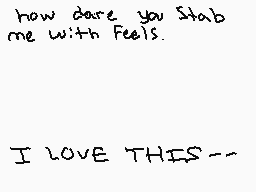 how dare you Stab
me with Feels.
I LOVE THIS--